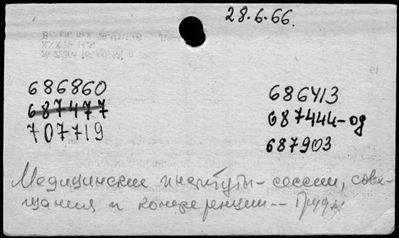 28.6.66.
686860
687477
707719
686413
687444-од
687903
Медицинские институты - сессии, сове-
щания и конференции -- Труды